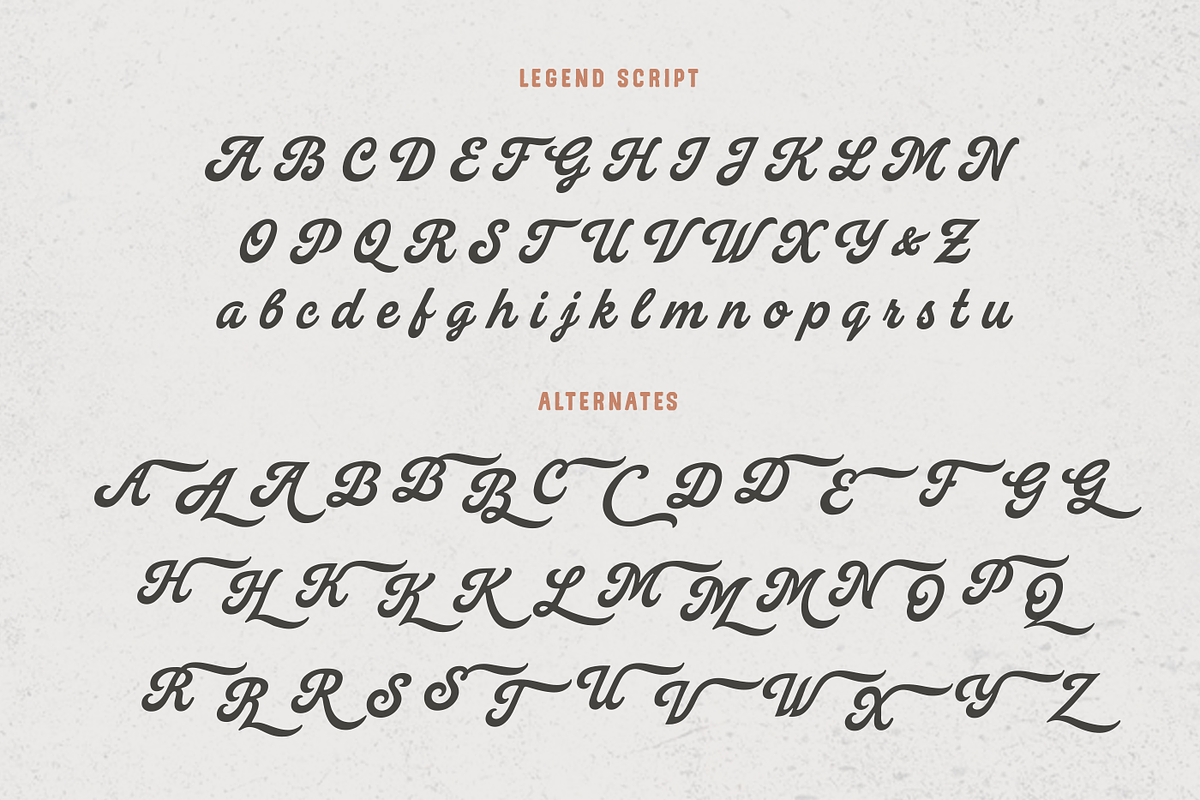 LEGEND SCRIPT
A B C D E F G H I J K L M N
O P Q R S T U V W X Y & Z
a b c d e f g h i j k l m n o p q r s t u
ALTERNATES
A A A B B B C C D D E F G G
H H K K K L M M M N O P Q
R R R S S T U V W X Y Z